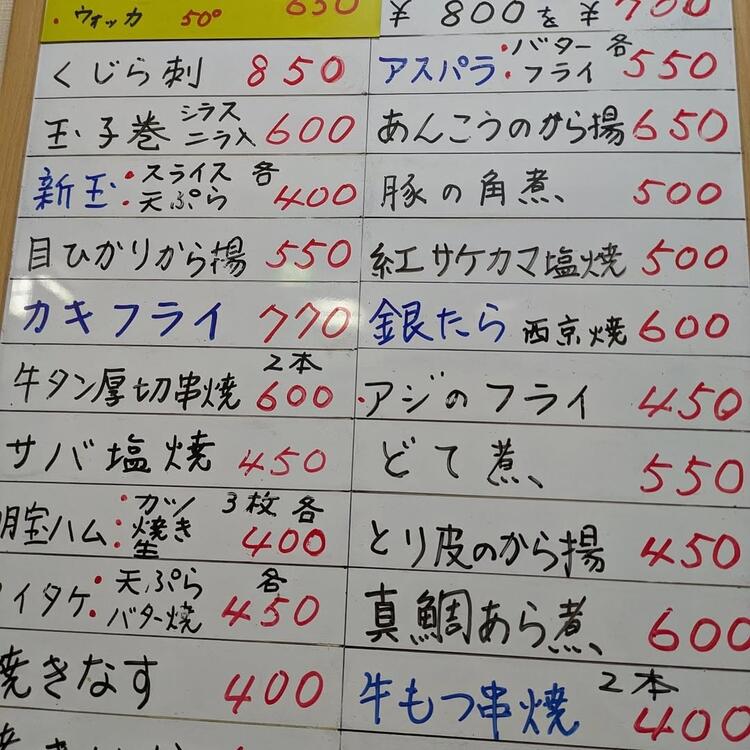 ・ウォッカ 50° 650
くじら刺 850
玉子巻 シラス ニラ入 600
新玉・スライス ・天ぷら 各 400
目ひかりから揚 550
カキフライ 770
牛タン厚切串焼 2本 600
サバ塩焼 450
明宝ハム ・カツ ・焼き ・生 3枚 各 400
イタケ ・天ぷら ・バター焼 各 450
焼きなす 400
¥800を¥700
アスパラ ・バター ・フライ 各 550
あんこうのから揚 650
豚の角煮 500
紅サケカマ塩焼 500
銀たら 西京焼 600
・アジのフライ 450
どて煮 550
とり皮のから揚 450
真鯛あら煮 600
牛もつ串焼 2本 400